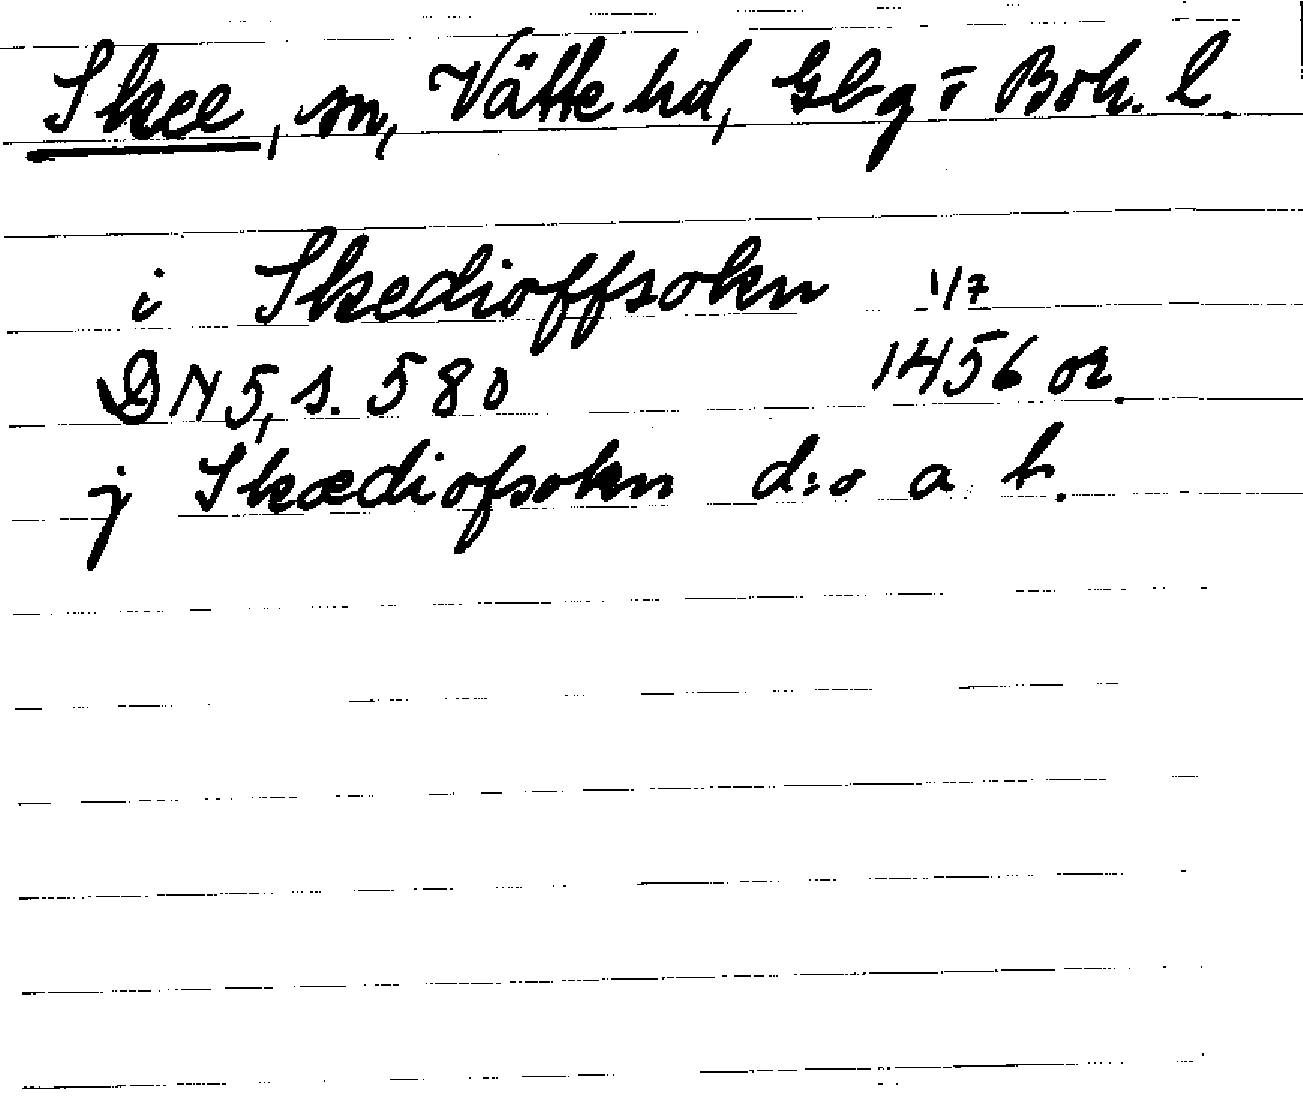 Skee, sn, Vätte hd, Gbg o Boh. l.
i Skedioffsokn 1/7
DN 5, s. 580 1456 or.
j Skædiofsokn d:o a b.